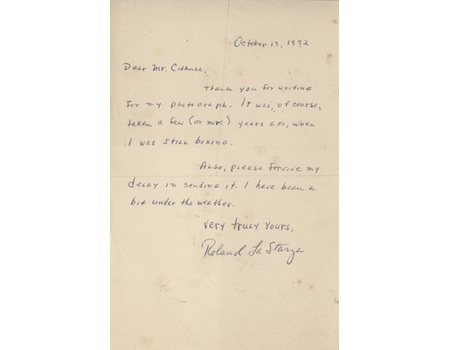 October 13, 1972
Dear Mr.
Thank you for writing
for my photograph. It was, of course,
taken a few (or more) years ago, when
I was still boxing.
Also, please forgive my
delay in sending it. I have been a
bit under the weather.
Very truly yours,
Roland La Starza